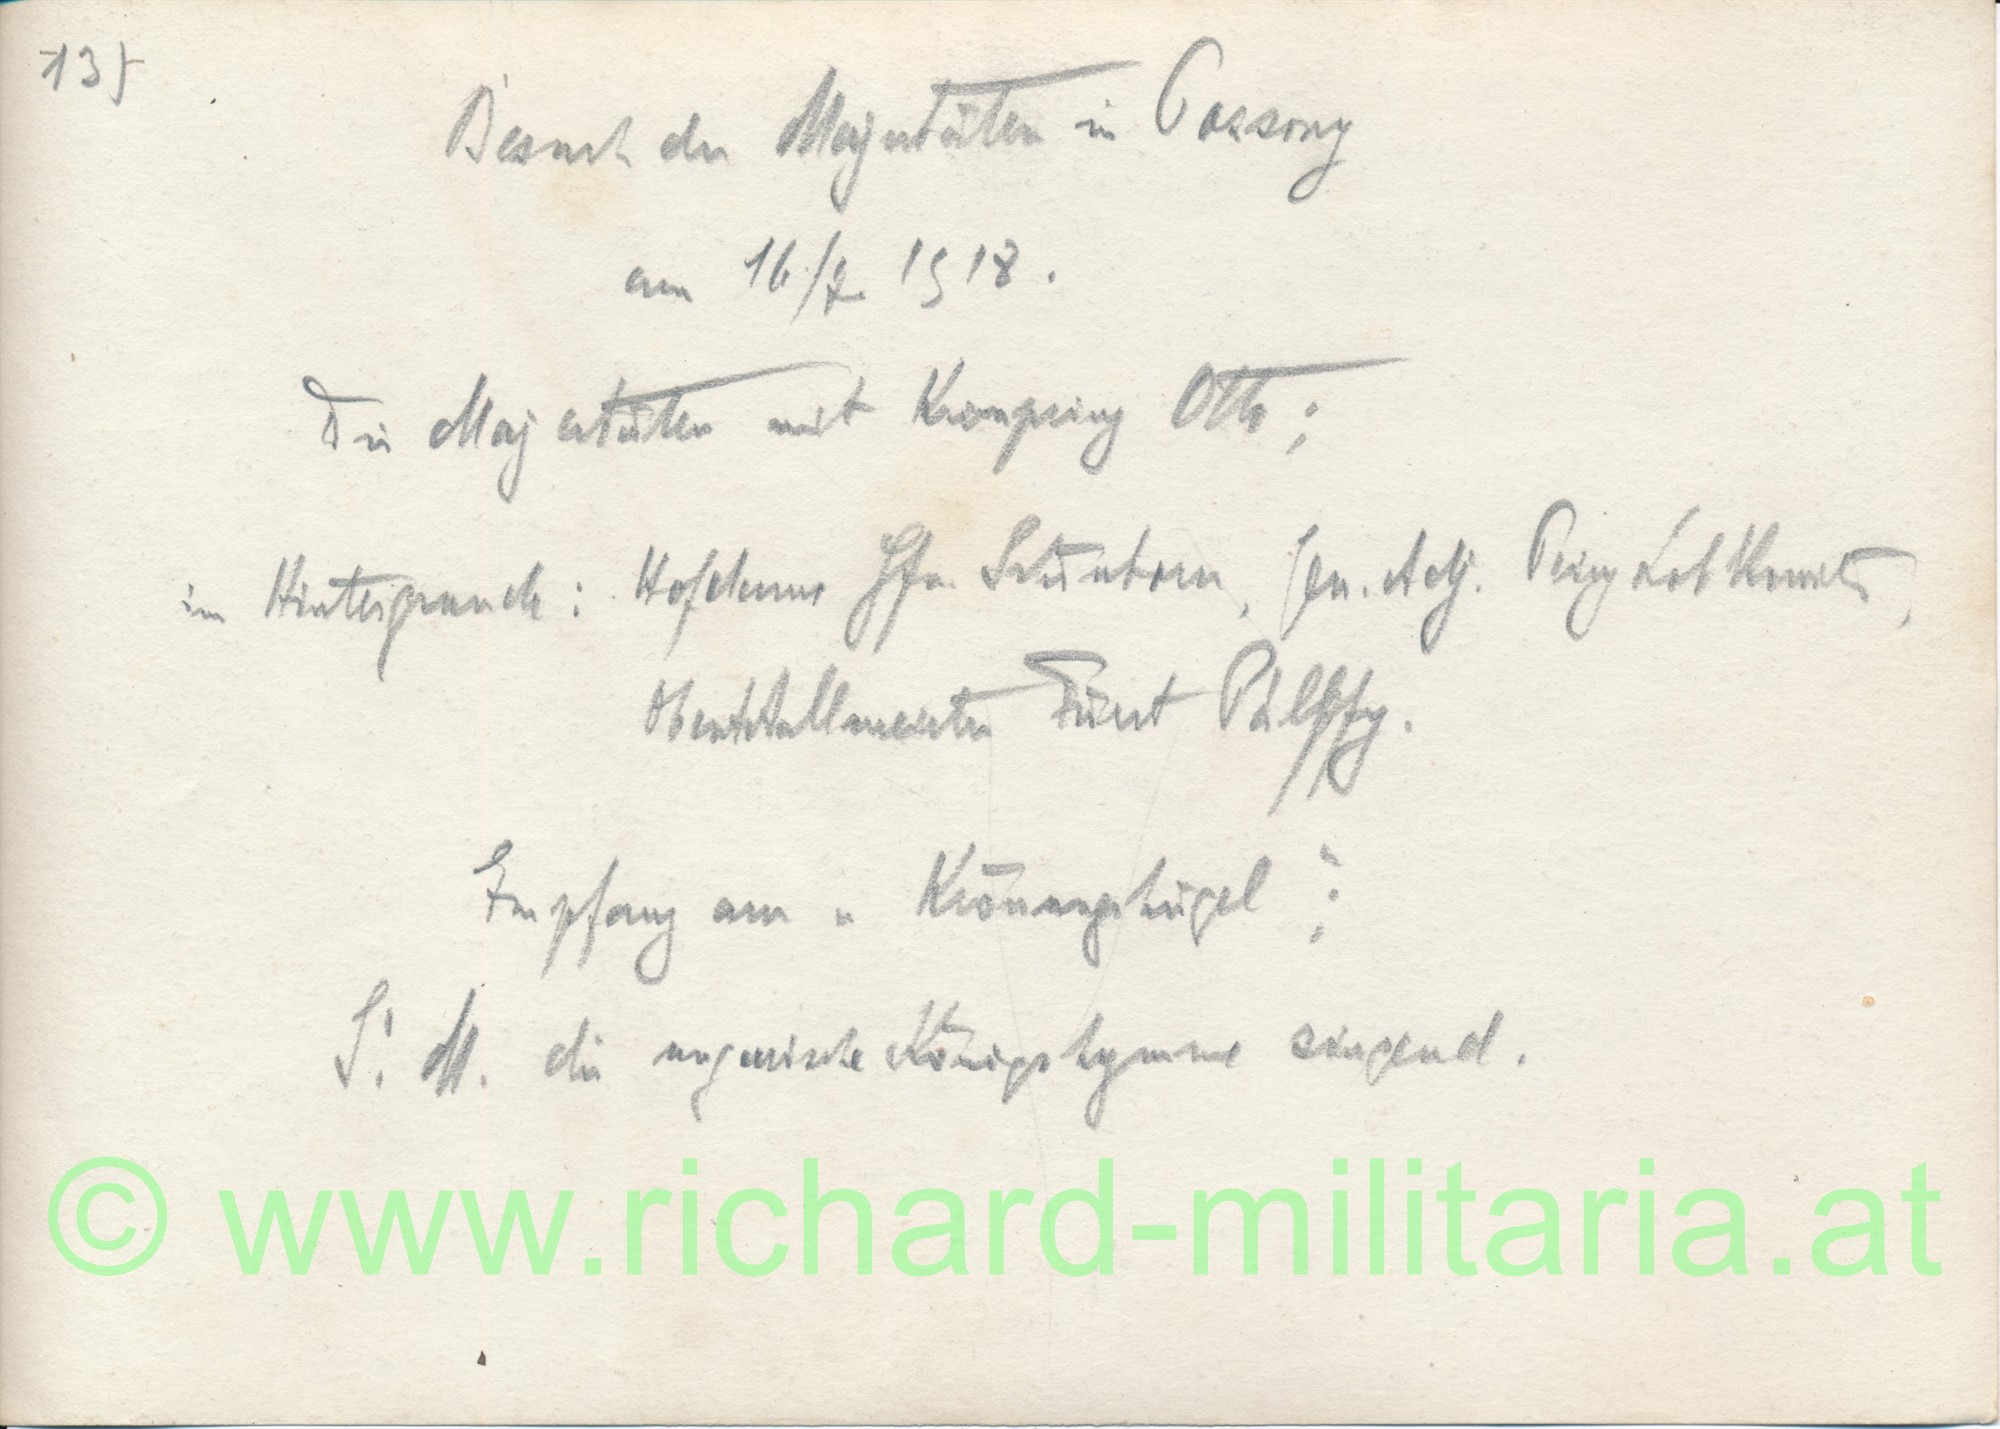 135
Besuch der Majestäten in Pozsony
am 16/7. 1918.
Die Majestäten mit Kronprinz Otto;
im Hintergrunde: Hofdame Gfn. Schönborn, Gen. Adj. Prinz Lobkowitz,
Oberststallmeister Fürst Pálffy.
Empfang am " Krönungshügel ";
S. M. die ungarische Königshymne singend.
© www.richard-militaria.at